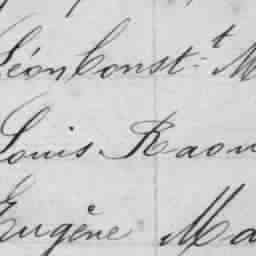 Léon Const.t M
Louis Raou
Eugène Ma